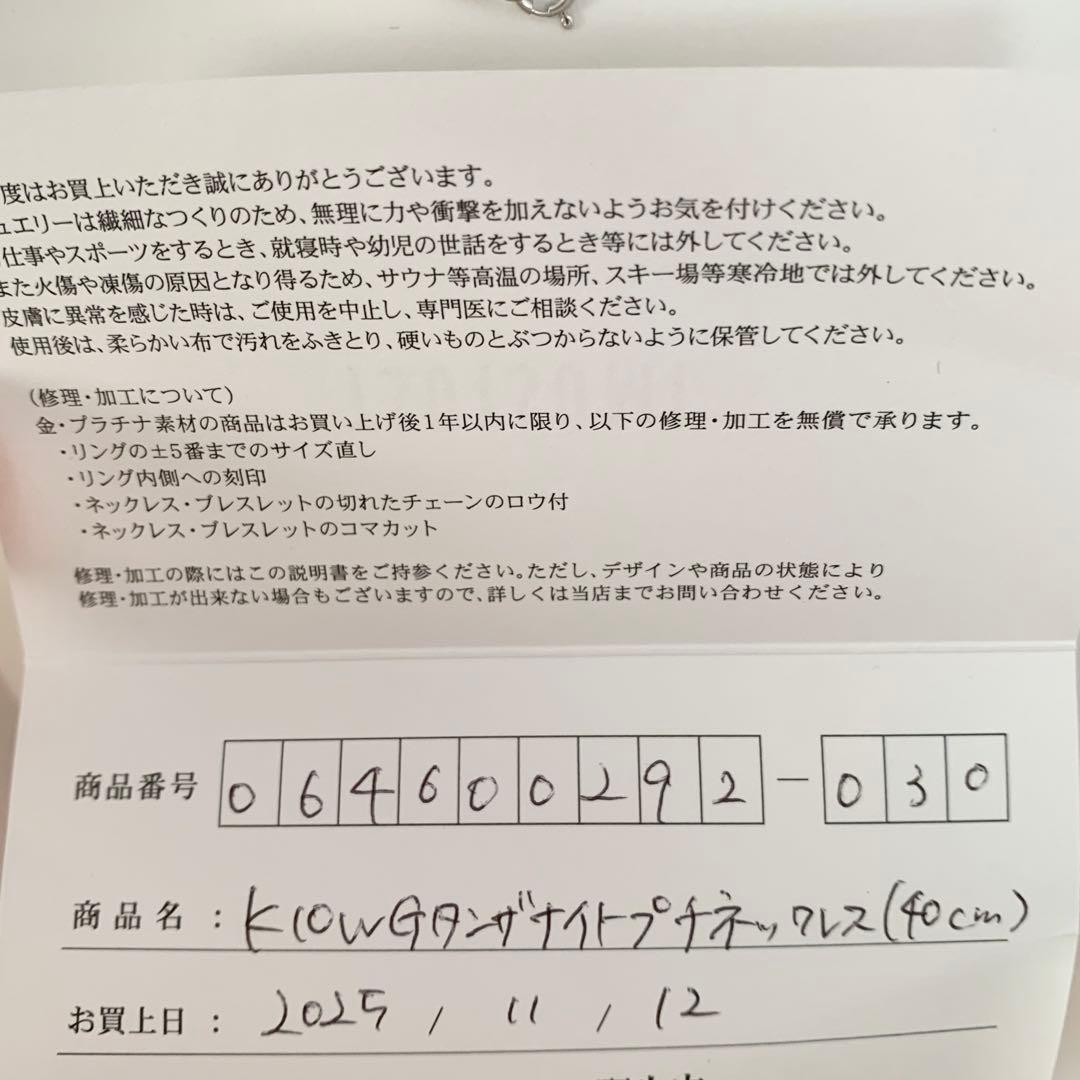 度はお買上いただき誠にありがとうございます。
ュエリーは繊細なつくりのため、無理に力や衝撃を加えないようお気を付けください。
仕事やスポーツをするとき、就寝時や幼児の世話をするとき等には外してください。
また火傷や凍傷の原因となり得るため、サウナ等高温の場所、スキー場等寒冷地では外してください。
皮膚に異常を感じた時は、ご使用を中止し、専門医にご相談ください。
使用後は、柔らかい布で汚れをふきとり、硬いものとぶつからないように保管してください。
(修理・加工について)
金・プラチナ素材の商品はお買い上げ後1年以内に限り、以下の修理・加工を無償で承ります。
・リングの±5番までのサイズ直し
・リング内側への刻印
・ネックレス・ブレスレットの切れたチェーンのロウ付
・ネックレス・ブレスレットのコマカット
修理・加工の際にはこの説明書をご持参ください。ただし、デザインや商品の状態により
修理・加工が出来ない場合もございますので、詳しくは当店までお問い合わせください。
商品番号 064600292-030
商品名:K10WGタンザナイトプチネックレス(40cm)
お買上日:2025/11/12